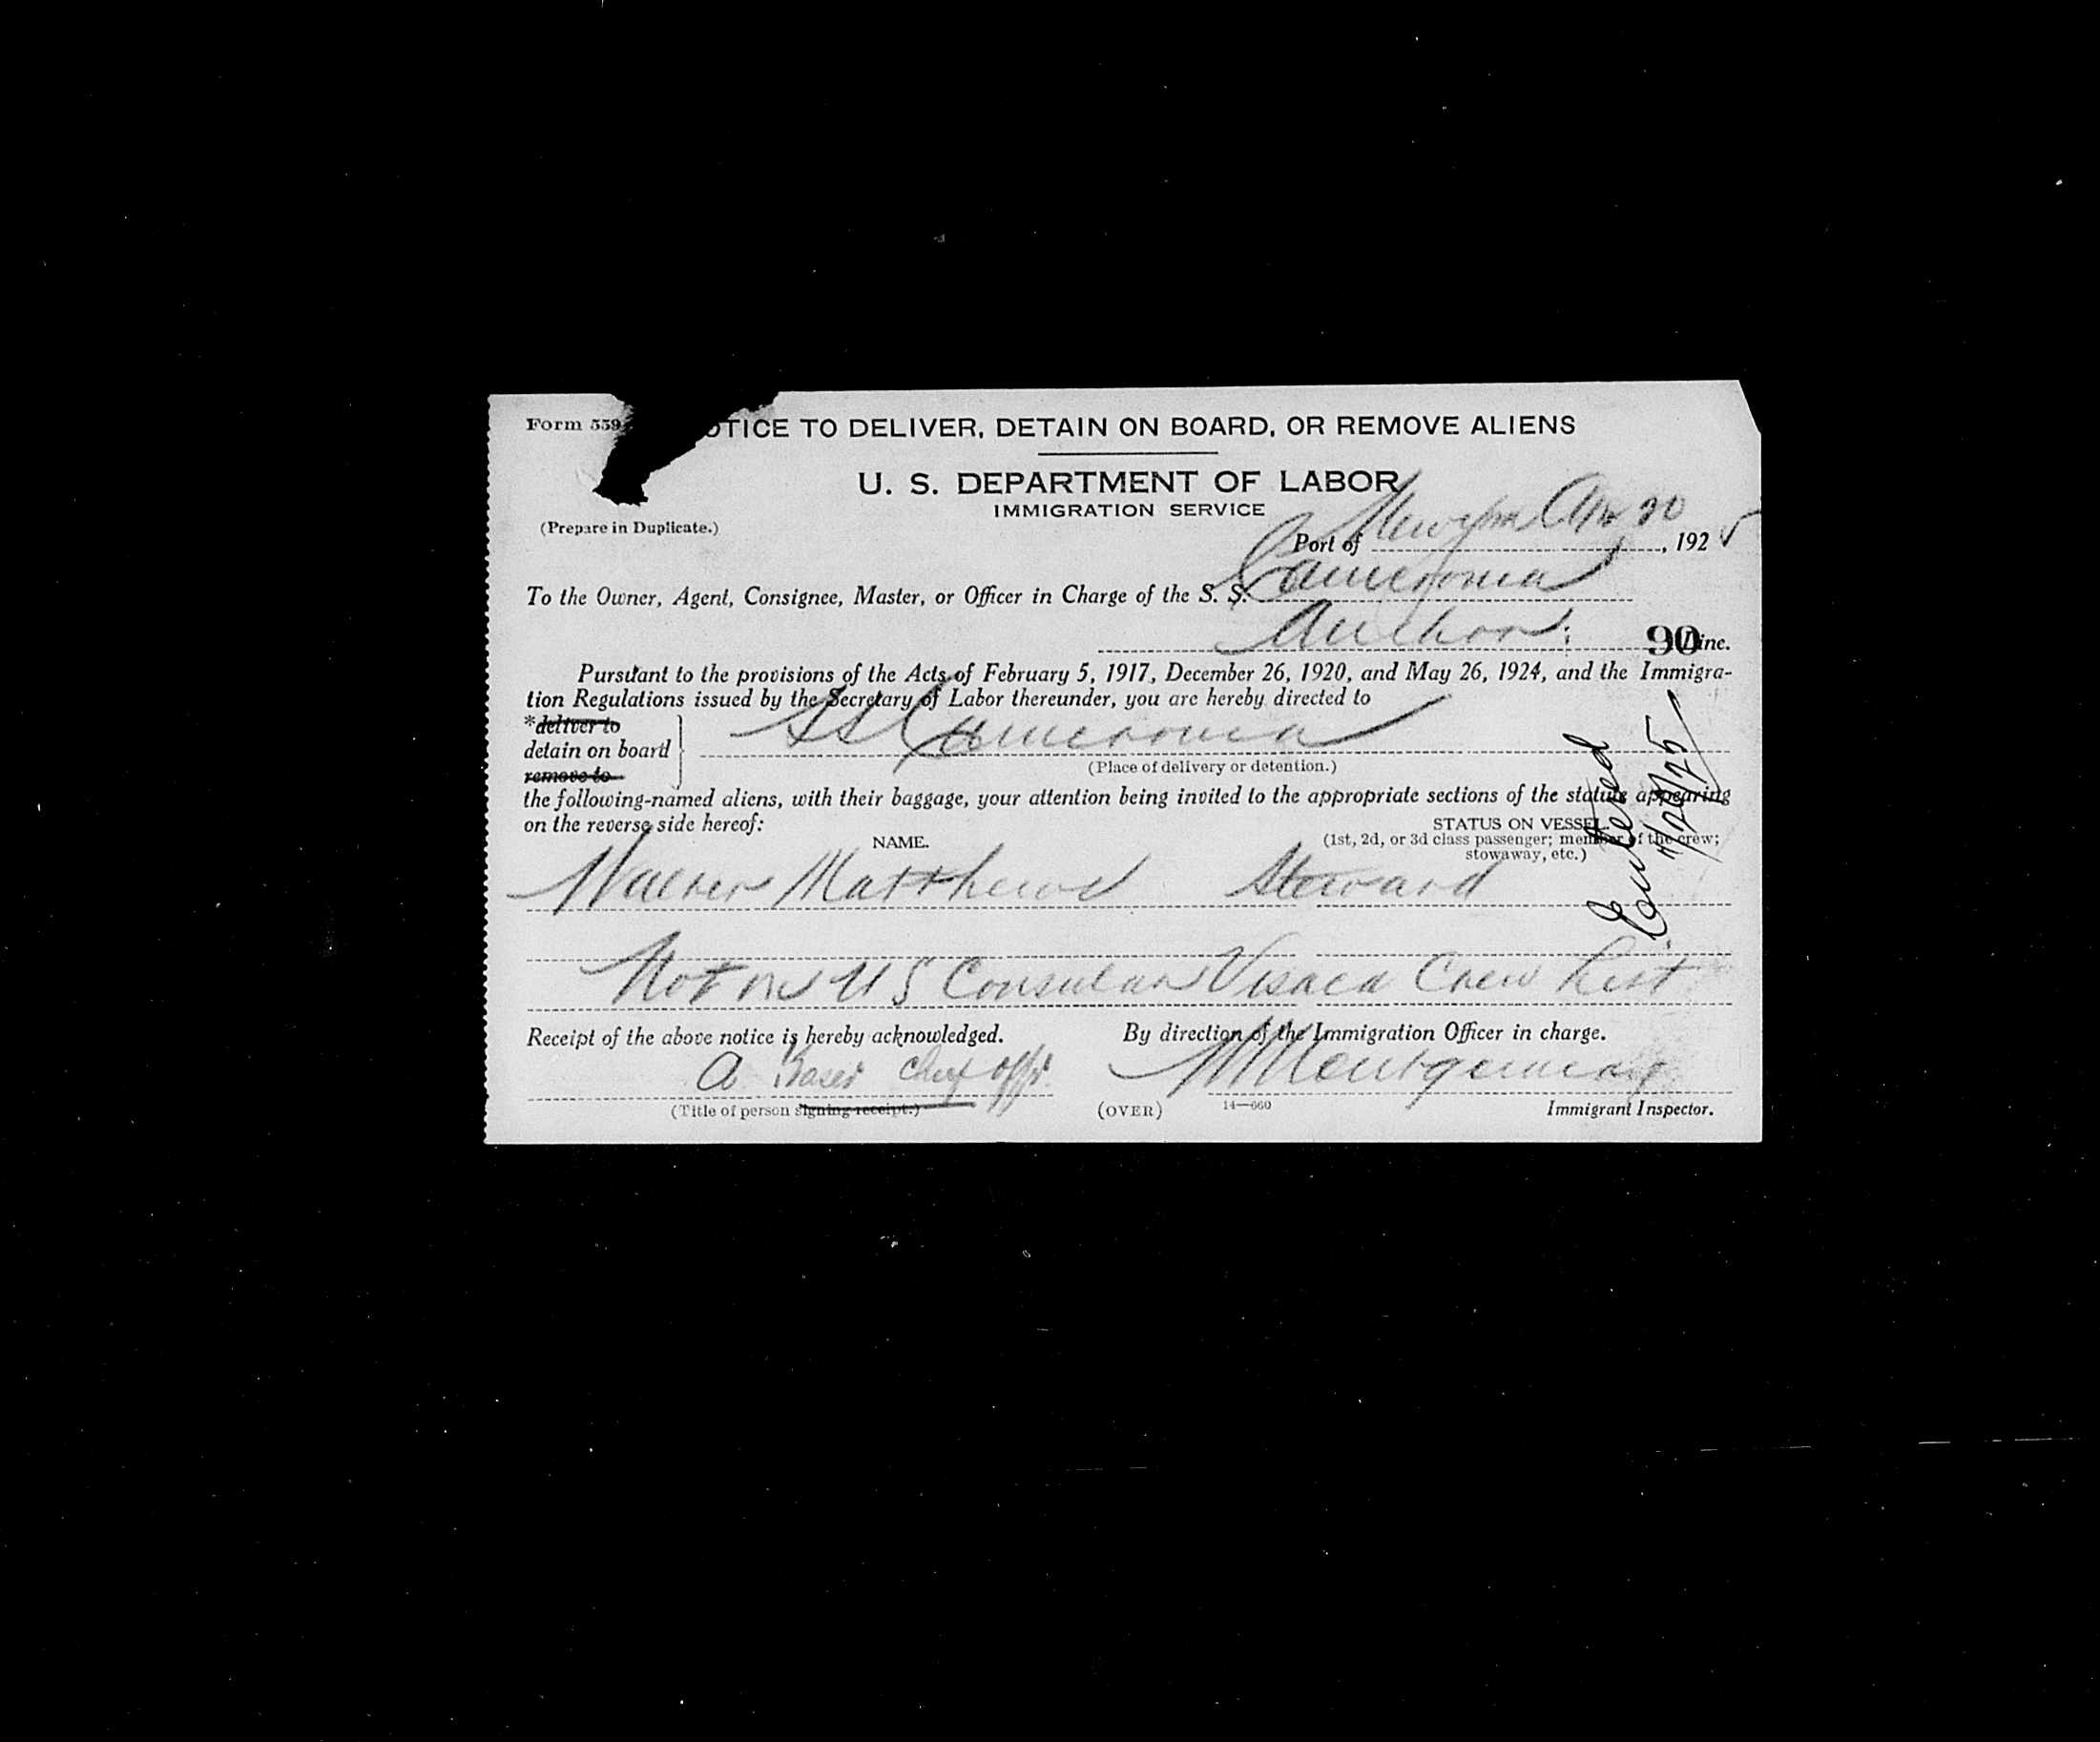 Form 559
OTICE TO DELIVER, DETAIN ON BOARD, OR REMOVE ALIENS
U. S. DEPARTMENT OF LABOR
IMMIGRATION SERVICE
(Prepare in Duplicate.)
Port of Apr 20, 1925
To the Owner, Agent, Consignee, Master, or Officer in Charge of the S. S. Cameronia
Anchor 90 Line.
Pursuant to the provisions of the Acts of February 5, 1917, December 26, 1920, and May 26, 1924, and the Immigra-
tion Regulations issued by the Secretary of Labor thereunder, you are hereby directed to
*deliver to
detain on board SS Cameronia
remove to
(Place of delivery or detention.)
the following-named aliens, with their baggage, your attention being invited to the appropriate sections of the statute appearing
on the reverse side hereof:
NAME. STATUS ON VESSEL.
(1st, 2d, or 3d class passenger; member of the crew;
stowaway, etc.)
Walter Matthews Steward
Entered
4/20/25
Not on U S Consular Visaed Crew List
Receipt of the above notice is hereby acknowledged. By direction of the Immigration Officer in charge.
A Chief Offr. Montgomery
(Title of person signing receipt.) (OVER) 14—660 Immigrant Inspector.